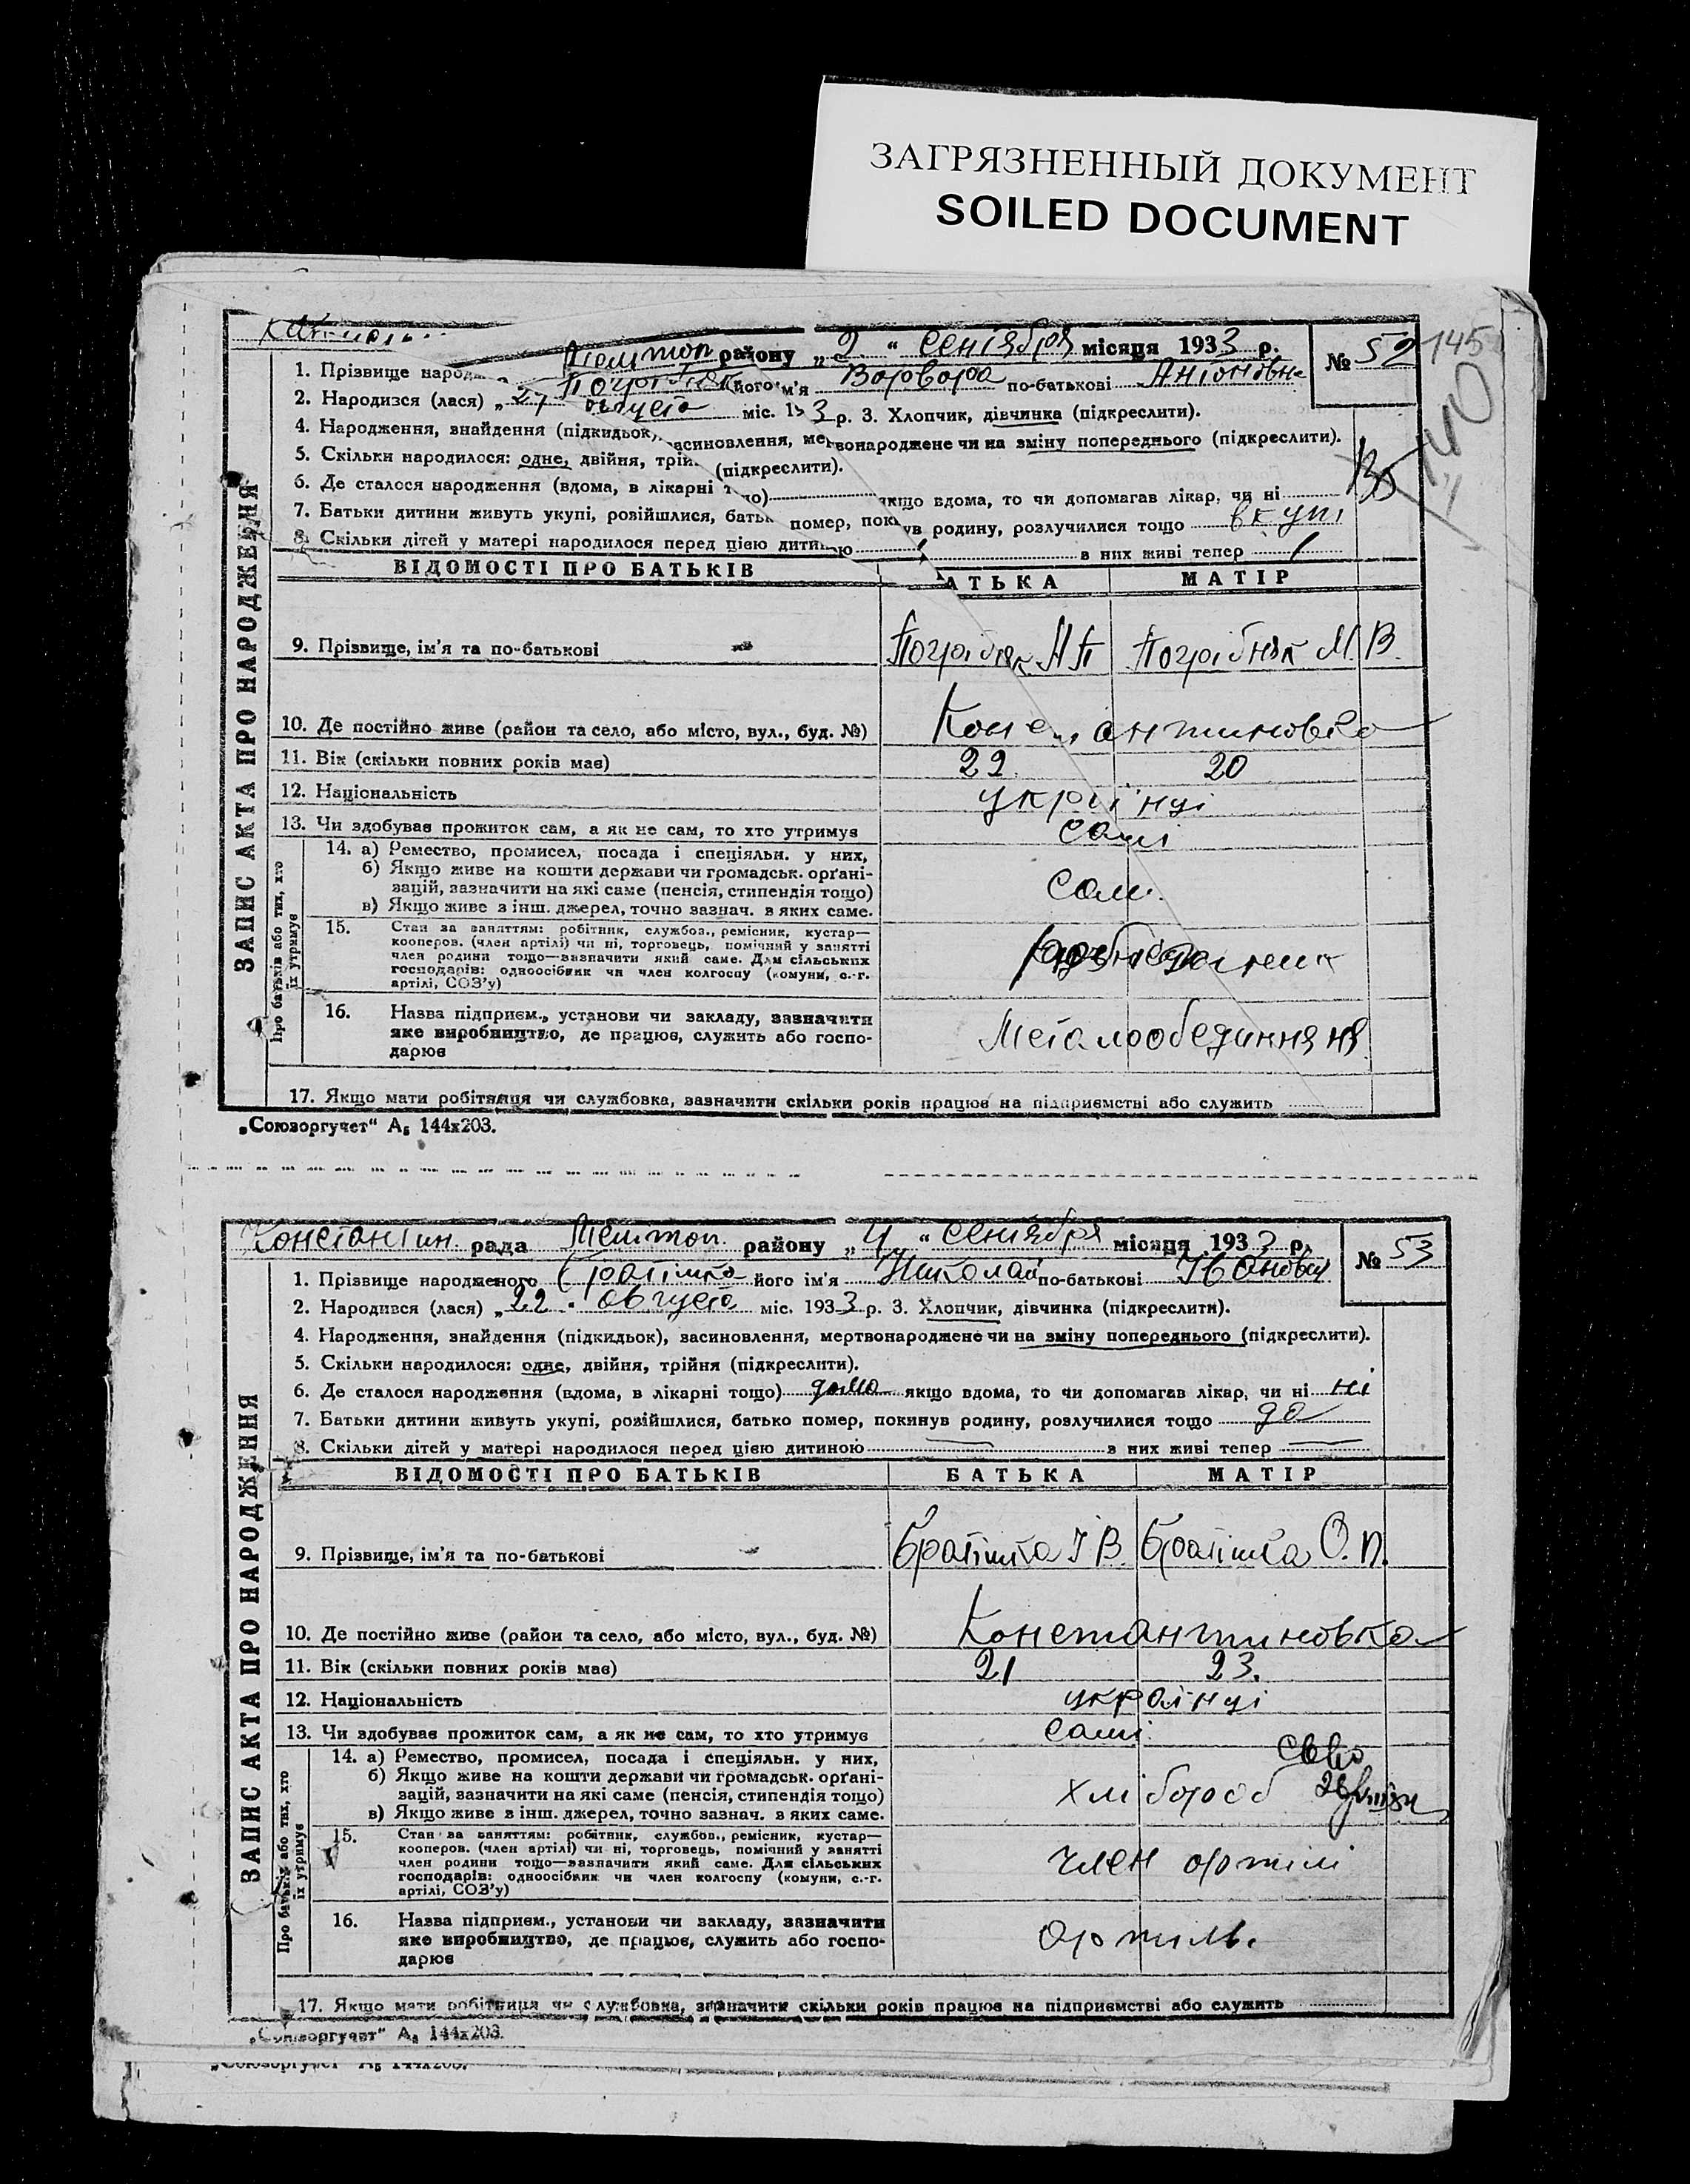 ЗАГРЯЗНЕННЫЙ ДОКУМЕНТ
SOILED DOCUMENT
145
району „2 “ Сентября місяця 1933 р.
№ 52
1. Прізвище народж його ім'яВорвора по-батькові Антоновна
2. Народився (лася) „27 августа міс. 193 3 р. 3. Хлопчик, дівчинка (підкреслити).
4. Народження, знайдення (підкидьок), засиновлення, мертвонароджене чи на зміну попереднього (підкреслити).
5. Скільки народилося: одне, двійня, трійня (підкреслити).
6. Де сталося народження (вдома, в лікарні тощо) якщо вдома, то чи допомагав лікар, чи ні
7. Батьки дитини живуть укупі, розійшлися, батько помер, покинув родину, розлучилися тощо вкупі
8. Скільки дітей у матері народилося перед цією дитиною 1 в них живі тепер 1
ВІДОМОСТІ ПРО БАТЬКІВ АТЬКА МАТІР
9. Прізвище, ім'я та по-батькові Погрібняк А П Погрібняк М. В.
10. Де постійно живе (район та село, або місто, вул., буд. №) Константиновка
11. Вік (скільки повних років має) 22. 20
12. Національність українці
13. Чи здобував прожиток сам, а як не сам, то хто утримує самі
14. а) Ремество, промисел, посада і спеціяльн. у них,
б) Якщо живе на кошти держави чи громадськ. орґані-
зацій, зазначити на які саме (пенсія, стипендія тощо) сам.
в) Якщо живе з інш. джерел, точно зазнач. з яких саме.
15. Стан за заняттям: робітник, службов., ремісник, кустар—
кооперов. (член артілі) чи ні, торговець, помічний у занятті
член родини тощо—зазначити який саме. Для сільських
господарів: одноосібник чи член колгоспу (комуни, с.-г.
артілі, СОЗ'у)
16. Назва підприєм., установи чи закладу, зазначити
яке виробництво, де працює, служить або госпо-
дарює
Металообединня
17. Якщо мати робітниця чи службовка, зазначити скільки років працює на підприємстві або служить
ЗАПИС АКТА ПРО НАРОДЖЕННЯ
Про батьків або тих, хто їх утримує
„Союзоргучет“ А5 144х203.
Константин. рада району „4 “ Сентября місяця 1933 р.
№ 53
1. Прізвище народженого Братішка його ім'я Николай по-батькові Іванович
2. Народився (лася) „22 августа міс. 1933 р. 3. Хлопчик, дівчинка (підкреслити).
4. Народження, знайдення (підкидьок), засиновлення, мертвонароджене чи на зміну попереднього (підкреслити).
5. Скільки народилося: одне, двійня, трійня (підкреслити).
6. Де сталося народження (вдома, в лікарні тощо) дома якщо вдома, то чи допомагав лікар, чи ні ні
7. Батьки дитини живуть укупі, розійшлися, батько помер, покинув родину, розлучилися тощо да
8. Скільки дітей у матері народилося перед цією дитиною — в них живі тепер —
ВІДОМОСТІ ПРО БАТЬКІВ БАТЬКА МАТІР
9. Прізвище, ім'я та по-батькові Братішка І В. Братішка О. П.
10. Де постійно живе (район та село, або місто, вул., буд. №) Константиновка
11. Вік (скільки повних років має) 21 23.
12. Національність українці
13. Чи здобував прожиток сам, а як не сам, то хто утримує самі.
14. а) Ремество, промисел, посада і спеціяльн. у них,
б) Якщо живе на кошти держави чи громадськ. орґані-
зацій, зазначити на які саме (пенсія, стипендія тощо) хлібороб
в) Якщо живе з інш. джерел, точно зазнач. з яких саме.
15. Стан за заняттям: робітник, службов., ремісник, кустар—
кооперов. (член артілі) чи ні, торговець, помічний у занятті
член родини тощо—зазначити який саме. Для сільських
господарів: одноосібник чи член колгоспу (комуни, с.-г.
артілі, СОЗ'у)
член артілі
16. Назва підприєм., установи чи закладу, зазначити
яке виробництво, де працює, служить або госпо-
дарює
Артиль.
17. Якщо мати робітниця чи службовка, зазначити скільки років працює на підприємстві або служить
ЗАПИС АКТА ПРО НАРОДЖЕННЯ
Про батьків або тих, хто їх утримує
„Союзоргучет“ А5 144х203.
„Союзоргучет“ А5 144х203.